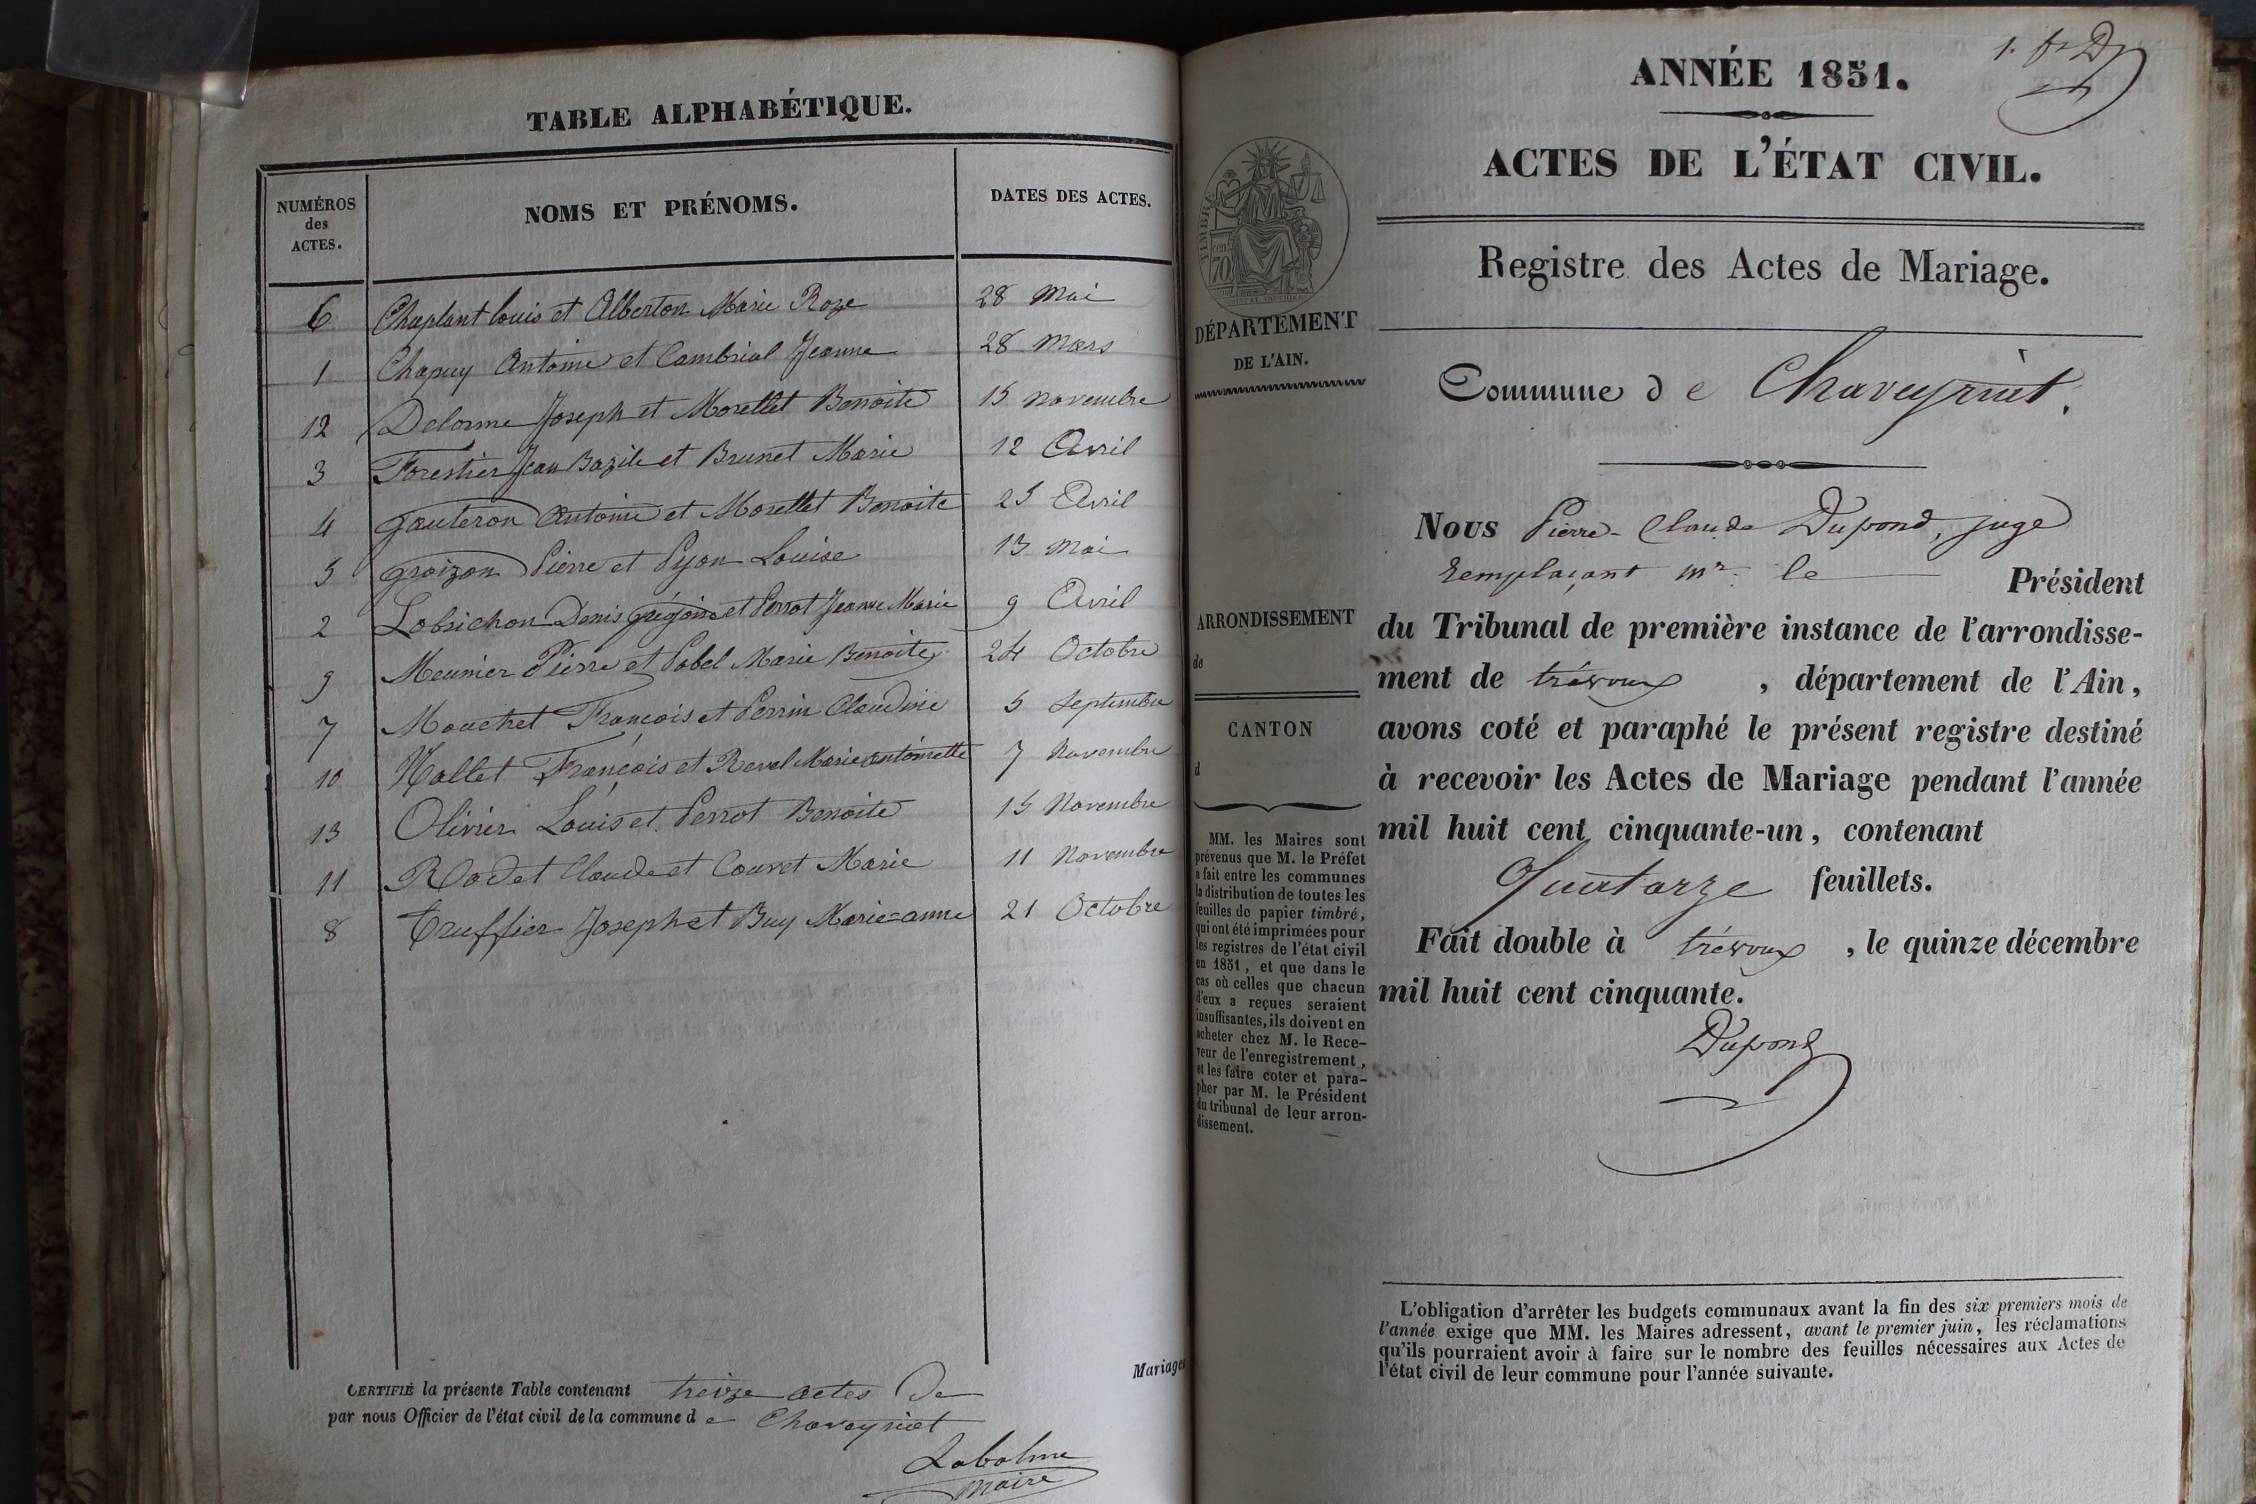 TABLE ALPHABÉTIQUE.
NUMÉROS
des
ACTES.
NOMS ET PRÉNOMS.
DATES DES ACTES.
6 Chaplant Louis et Alberton Marie Roze 28 Mai
1 Chapuy Antoine et Cambrial Jeanne 28 Mars
12 Delorme Joseph et Morellet Benoite 15 Novembre
3 Forestier Jean Bazile et Brunet Marie 12 Avril
4 Gauteron Antoine et Morellet Benoite 25 Avril
5 Groizon Pierre et Pyon Louise 13 Mai
2 Lobrichon Denis Grégoire et Perrot Jeanne Marie 9 Avril
9 Meunier Pierre et Pobel Marie Benoite 24 Octobre
7 Mouchet François et Perrin Claudine 5 Septembre
10 Nallet François et Revel Marie antoinette 7 Novembre
13 Olivier Louis et Perrot Benoite 15 Novembre
11 Rodet Claude et Couret Marie 11 Novembre
8 Truffier Joseph et Buy Marie=anne 21 Octobre
Mariages
CERTIFIÉ la présente Table contenant treize actes de
par nous Officier de l'état civil de la commune d e Chaveyriat
Labalme
Maire
ANNÉE 1851.
ACTES DE L'ÉTAT CIVIL.
Registre des Actes de Mariage.
TIMBRE
cent
70
DÉPARTEMENT
DE L'AIN.
Commune d e Chaveyriat.
Nous Pierre-Claude Dupond, juge
remplaçant Mr. le Président
du Tribunal de première instance de l'arrondisse-
ment de trévoux , département de l'Ain,
avons coté et paraphé le présent registre destiné
à recevoir les Actes de Mariage pendant l'année
mil huit cent cinquante-un, contenant
Quatorze feuillets.
Fait double à trévoux , le quinze décembre
mil huit cent cinquante.
Dupond
ARRONDISSEMENT
de
CANTON
d
MM. les Maires sont
prévenus que M. le Préfet
a fait entre les communes
la distribution de toutes les
feuilles de papier timbré,
qui ont été imprimées pour
les registres de l'état civil
en 1851, et que dans le
cas où celles que chacun
d'eux a reçues seraient
insuffisantes, ils doivent en
acheter chez M. le Rece-
veur de l'enregistrement,
et les faire coter et para-
pher par M. le Président
du tribunal de leur arron-
dissement.
L'obligation d'arrêter les budgets communaux avant la fin des six premiers mois de
l'année exige que MM. les Maires adressent, avant le premier juin, les réclamations
qu'ils pourraient avoir à faire sur le nombre des feuilles nécessaires aux Actes de
l'état civil de leur commune pour l'année suivante.